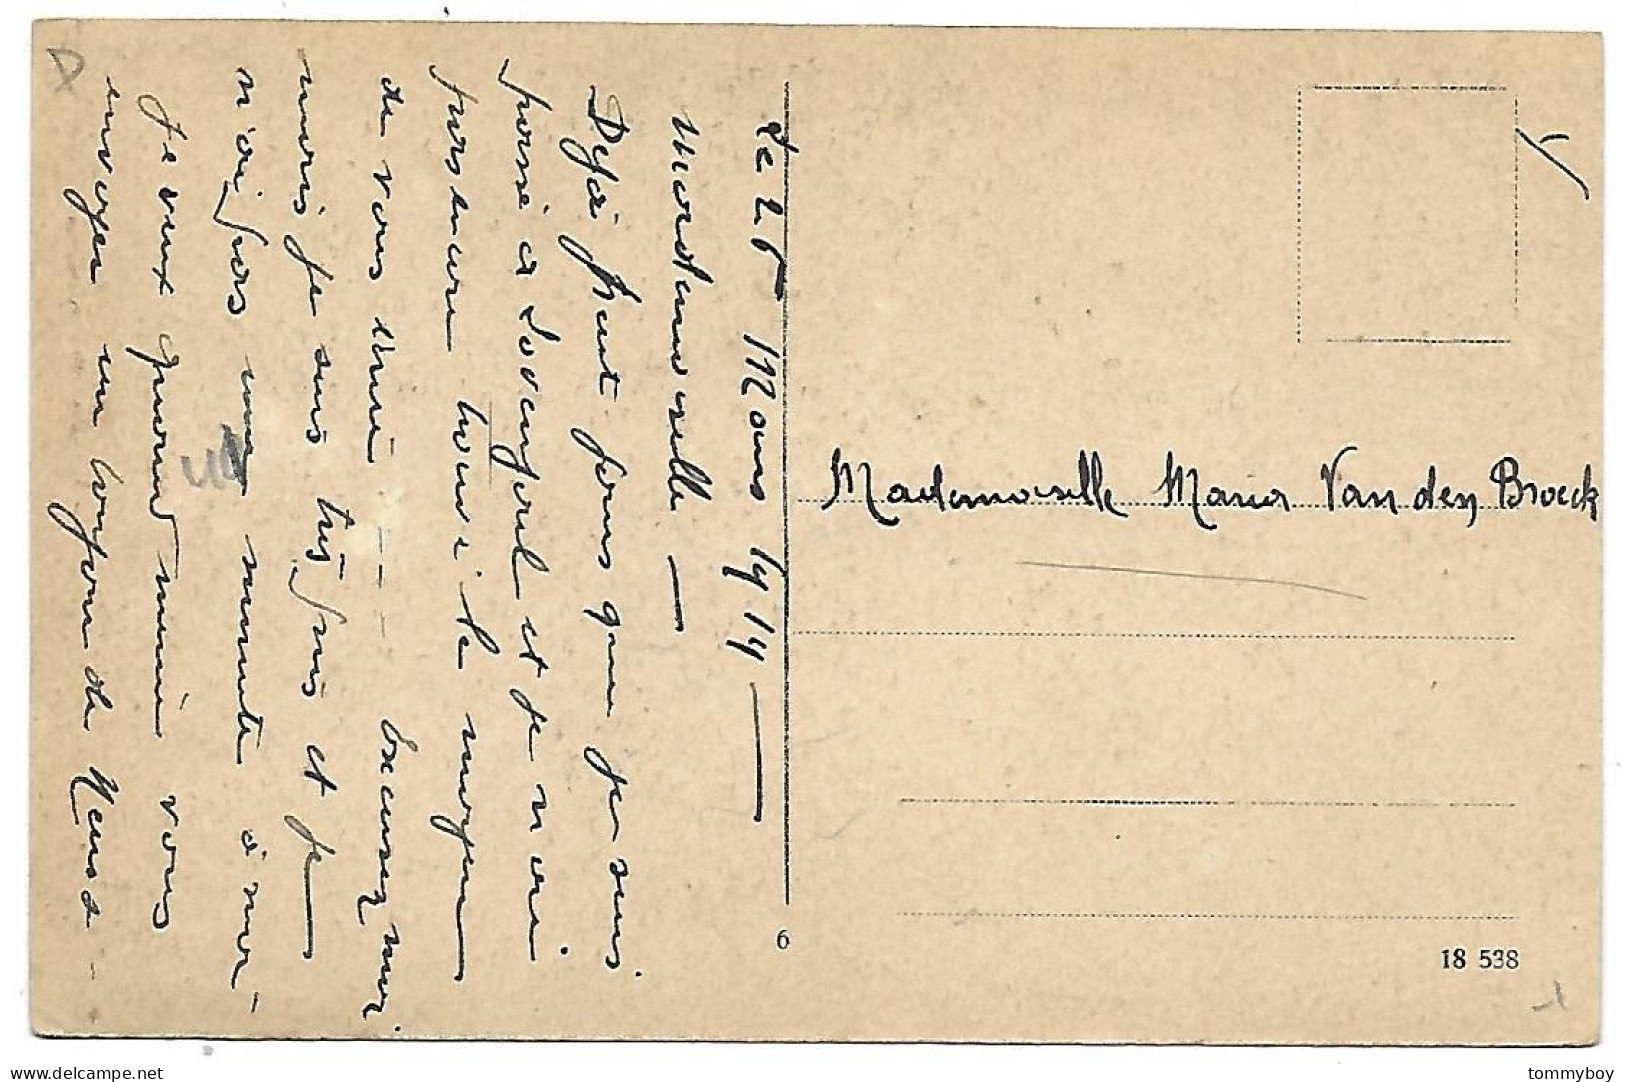 Le 25 Mars 1914
Mademoiselle
Déjà huit jours que je suis
passé à et je n'ai
pas encore le moyen
de vous Excusez moi
mais je suis très pris et je
n'ai pas une minute à moi
Je veux quand même vous
envoyer un bonjour de
Mademoiselle Maria Van den Broeck
6
18 538
delcampe.net
tommyboy